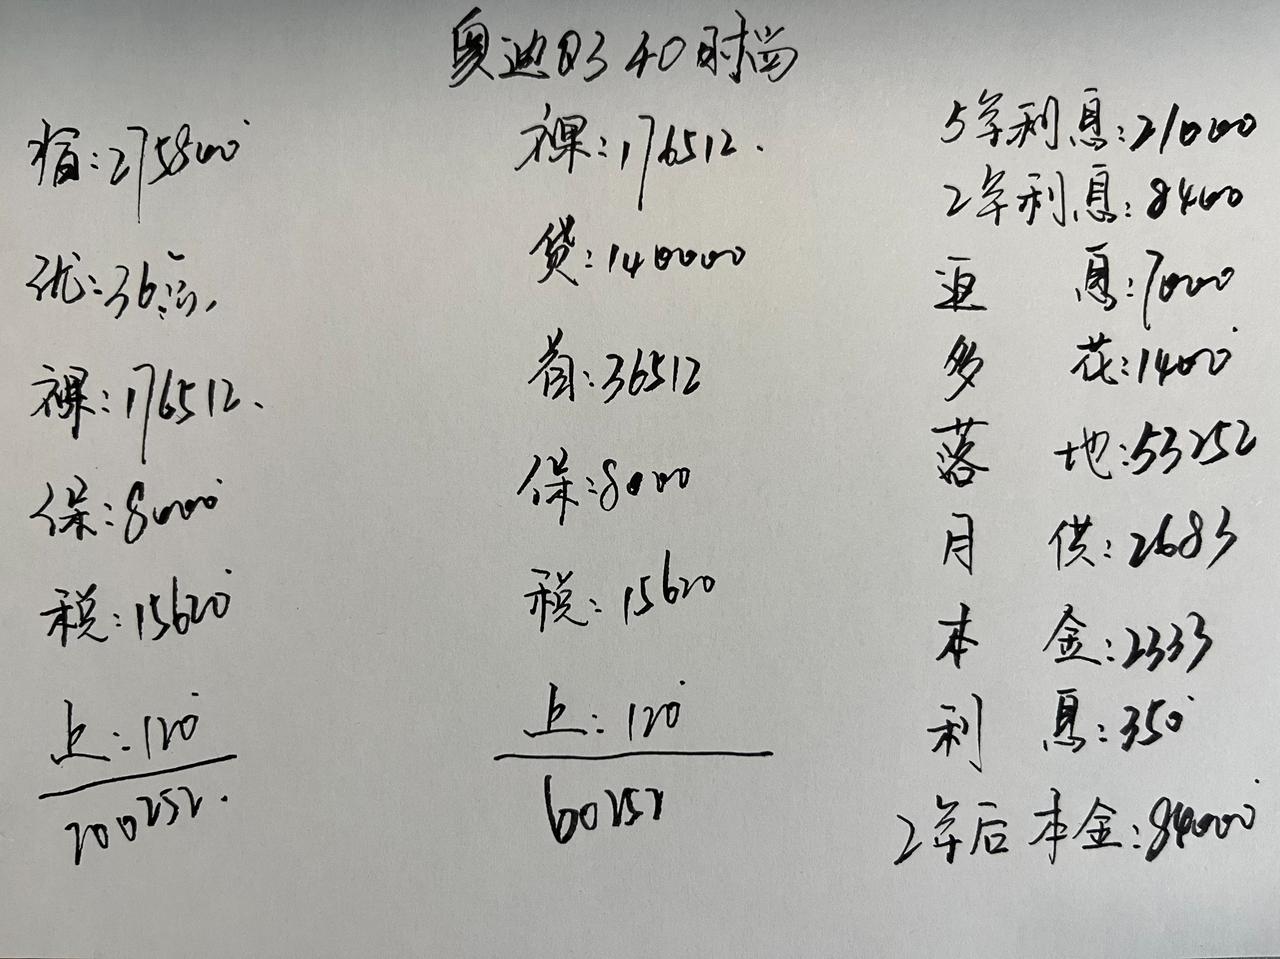 奥迪Q3 40时尚
指:275800
优:36点
裸:176512.
保:8000
税:15620
上:120
200252.
裸:176512.
贷:140000
首:36512
保:8000
税:15620
上:120
60252
5年利息:21000
2年利息:8400
返息:7000
多花:1400
落地:53252
月供:2683
本金:2333
利息:350
2年后本金:84000